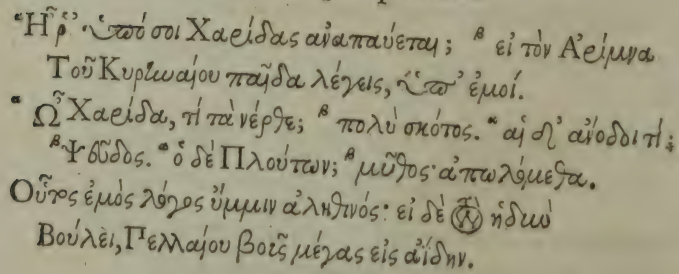 α Ἦ ῥ' ὑπό σοι Χαρίδας ἀναπαύεται; β εἰ τὸν Ἀρίμνα
Τοῦ Κυρηναίου παῖδα λέγεις, ὑπ' ἐμοί.
α Ὦ Χαρίδα, τί τὰ νέρθε; β πολὺ σκότος. α αἱ δ' ἄνοδοι τί;
β Ψεῦδος. α ὁ δὲ Πλούτων; β μῦθος· ἀπωλόμεθα.
Οὗτος ἐμὸς λόγος ὔμμιν ἀληθινός· εἰ δὲ ἡδιὺ
Βούλει, Πελλαίου βοῦς μέγας εἰς ἀΐδην.